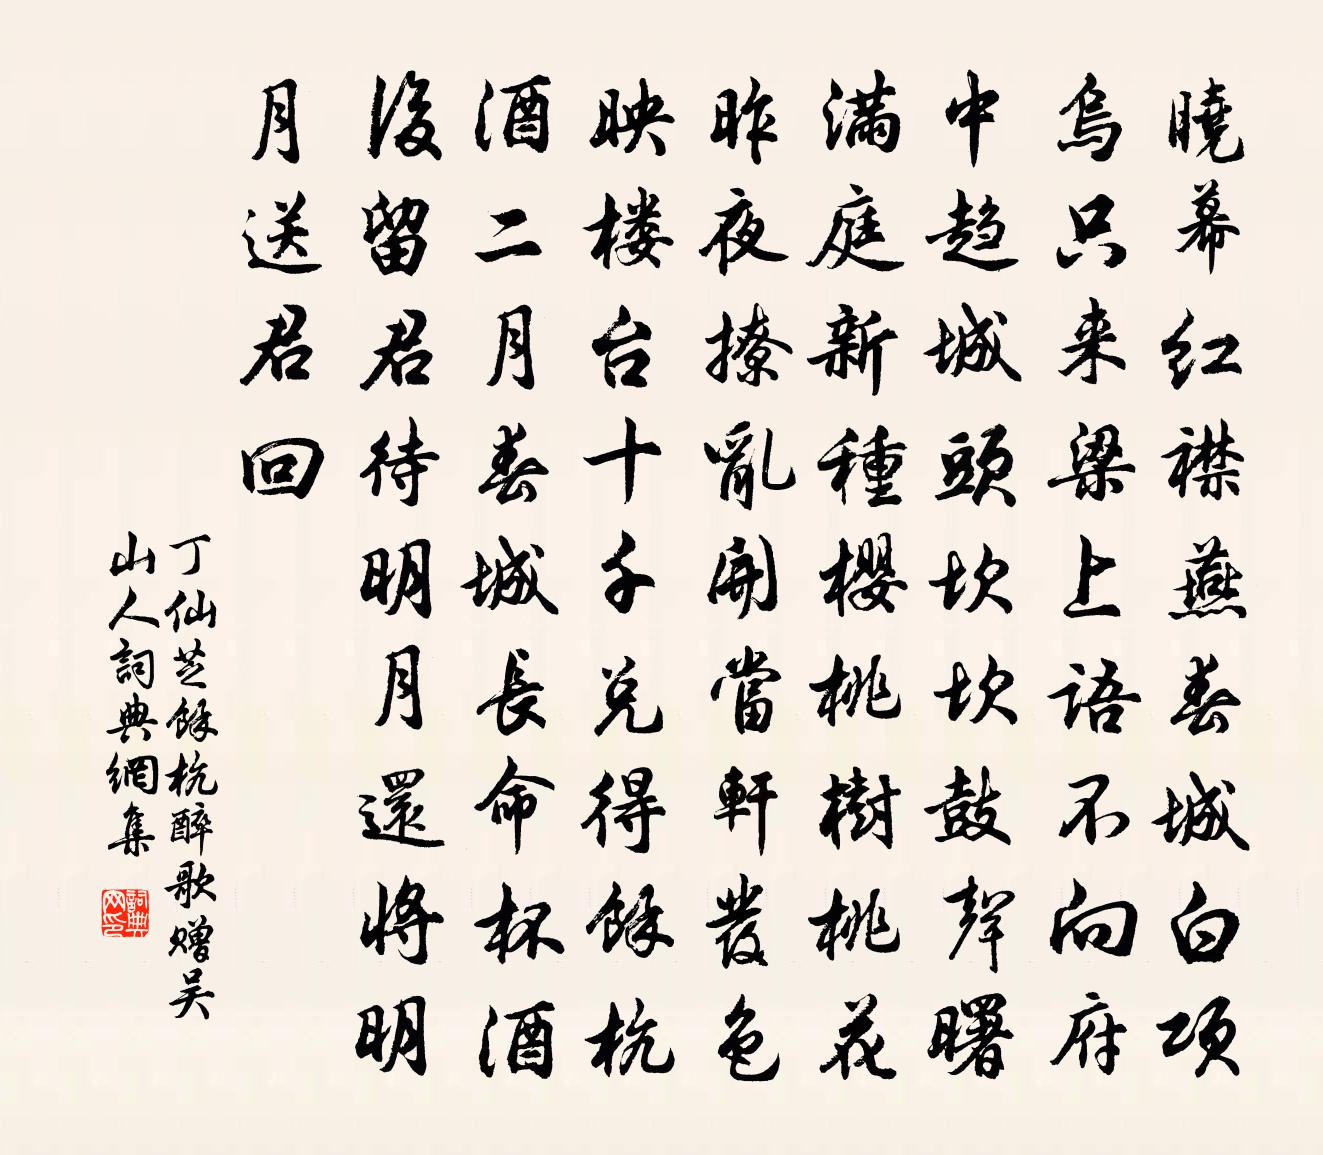 曉幕红襟燕春城白项
烏只来梁上语不向府
中趋城頭坎坎鼓聲曙
满庭新種櫻桃樹桃花
昨夜撩亂開當軒發色
映楼台十千兑得餘杭
酒二月春城長命杯酒
後留君待明月還將明
月送君回
丁仙芝餘杭醉歌赠吴
山人詞典網集
詞典网印